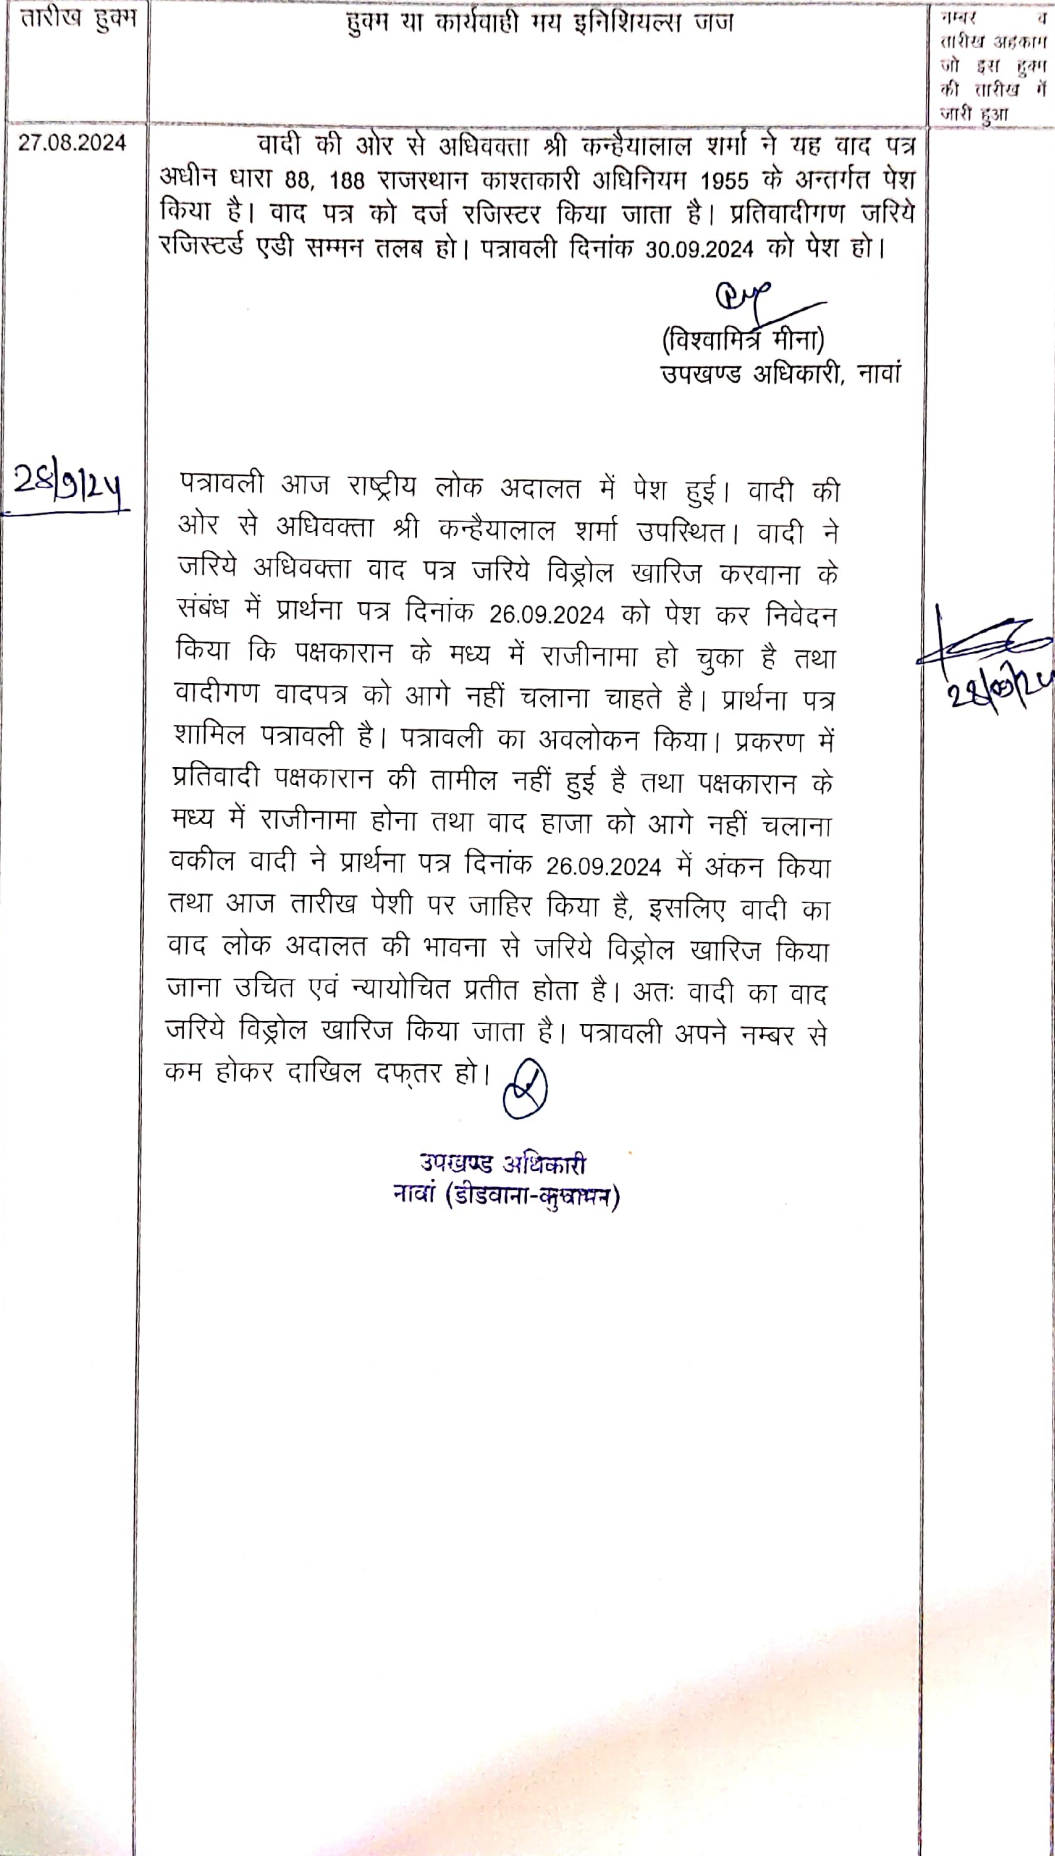 तारीख हुक्म
हुक्म या कार्यवाही मय इनिशियल्स जज
नम्बर व
तारीख अहकाम
जो इस हुक्म
की तारीख में
जारी हुआ
27.08.2024
वादी की ओर से अधिवक्ता श्री कन्हैयालाल शर्मा ने यह वाद पत्र
अधीन धारा 88, 188 राजस्थान काश्तकारी अधिनियम 1955 के अन्तर्गत पेश
किया है। वाद पत्र को दर्ज रजिस्टर किया जाता है। प्रतिवादीगण जरिये
रजिस्टर्ड एडी सम्मन तलब हो। पत्रावली दिनांक 30.09.2024 को पेश हो।
(विश्वामित्र मीना)
उपखण्ड अधिकारी, नावां
28/9/24
पत्रावली आज राष्ट्रीय लोक अदालत में पेश हुई। वादी की
ओर से अधिवक्ता श्री कन्हैयालाल शर्मा उपस्थित। वादी ने
जरिये अधिवक्ता वाद पत्र जरिये विड्रोल खारिज करवाना के
संबंध में प्रार्थना पत्र दिनांक 26.09.2024 को पेश कर निवेदन
किया कि पक्षकारान के मध्य में राजीनामा हो चुका है तथा
वादीगण वादपत्र को आगे नहीं चलाना चाहते है। प्रार्थना पत्र
शामिल पत्रावली है। पत्रावली का अवलोकन किया। प्रकरण में
प्रतिवादी पक्षकारान की तामील नहीं हुई है तथा पक्षकारान के
मध्य में राजीनामा होना तथा वाद हाजा को आगे नहीं चलाना
वकील वादी ने प्रार्थना पत्र दिनांक 26.09.2024 में अंकन किया
तथा आज तारीख पेशी पर जाहिर किया है, इसलिए वादी का
वाद लोक अदालत की भावना से जरिये विड्रोल खारिज किया
जाना उचित एवं न्यायोचित प्रतीत होता है। अतः वादी का वाद
जरिये विड्रोल खारिज किया जाता है। पत्रावली अपने नम्बर से
कम होकर दाखिल दफ्तर हो।
28/09/24
उपखण्ड अधिकारी
नावां (डीडवाना-कुचामन)